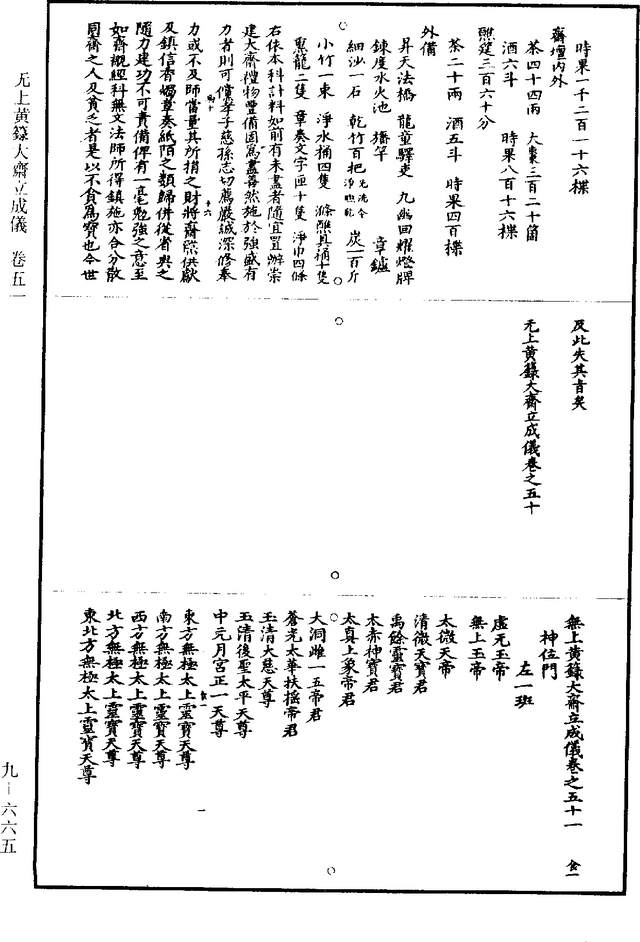 時果一千二百一十六楪
齋壇內外
茶四十四兩　大棗三百二十箇
酒六斗　時果八百十六楪
醮筵三百六十分
茶二十兩　酒五斗　時果四百楪
外備
昇天法橋　龍童驛吏　九幽回耀燈牌
鍊度水火池　旛竿　章鑪
細沙一石　乾竹百把　炭一百斤
小竹一束　淨水桶四隻　滌醮具桶十隻
熏籠二隻　章奏文字匣十隻　淨巾四條
右依本科計料如前有未盡者隨宜置辦崇
建大齋禮物豐備固為盡善然施於強盛有
力者則可儻孝子慈孫志切薦嚴誠深修奉
力或不及師當量其所捐之財將齋熙供獻
及鎮信香燭章奏紙陌之類歸併從省與之
隨力建功不可責備俾有一毫勉強之意至
如齋襯經科無文法師所得鎮施亦合分散
同齋之人及貧乏者是以不貪為寶也今世
及此失其旨矣
无上黃籙大齋立成儀卷之五十
無上黃籙大齋立成儀卷之五十一　食一
神位門
左一班
虛无玉帝
無上玉帝
太微天帝
清微天寶君
禹餘靈寶君
太赤神寶君
太真上景帝君
大洞雌一五帝君
蒼光太華扶搖帝君
玉清大慈天尊
玉清後聖太平天尊
中元月宮正一天尊
東方無極太上靈寶天尊
南方無極太上靈寶天尊
西方無極太上靈寶天尊
北方無極太上靈寶天尊
東北方無極太上靈寶天尊
无上黃籙大齋立成儀　卷五一
九－六六五